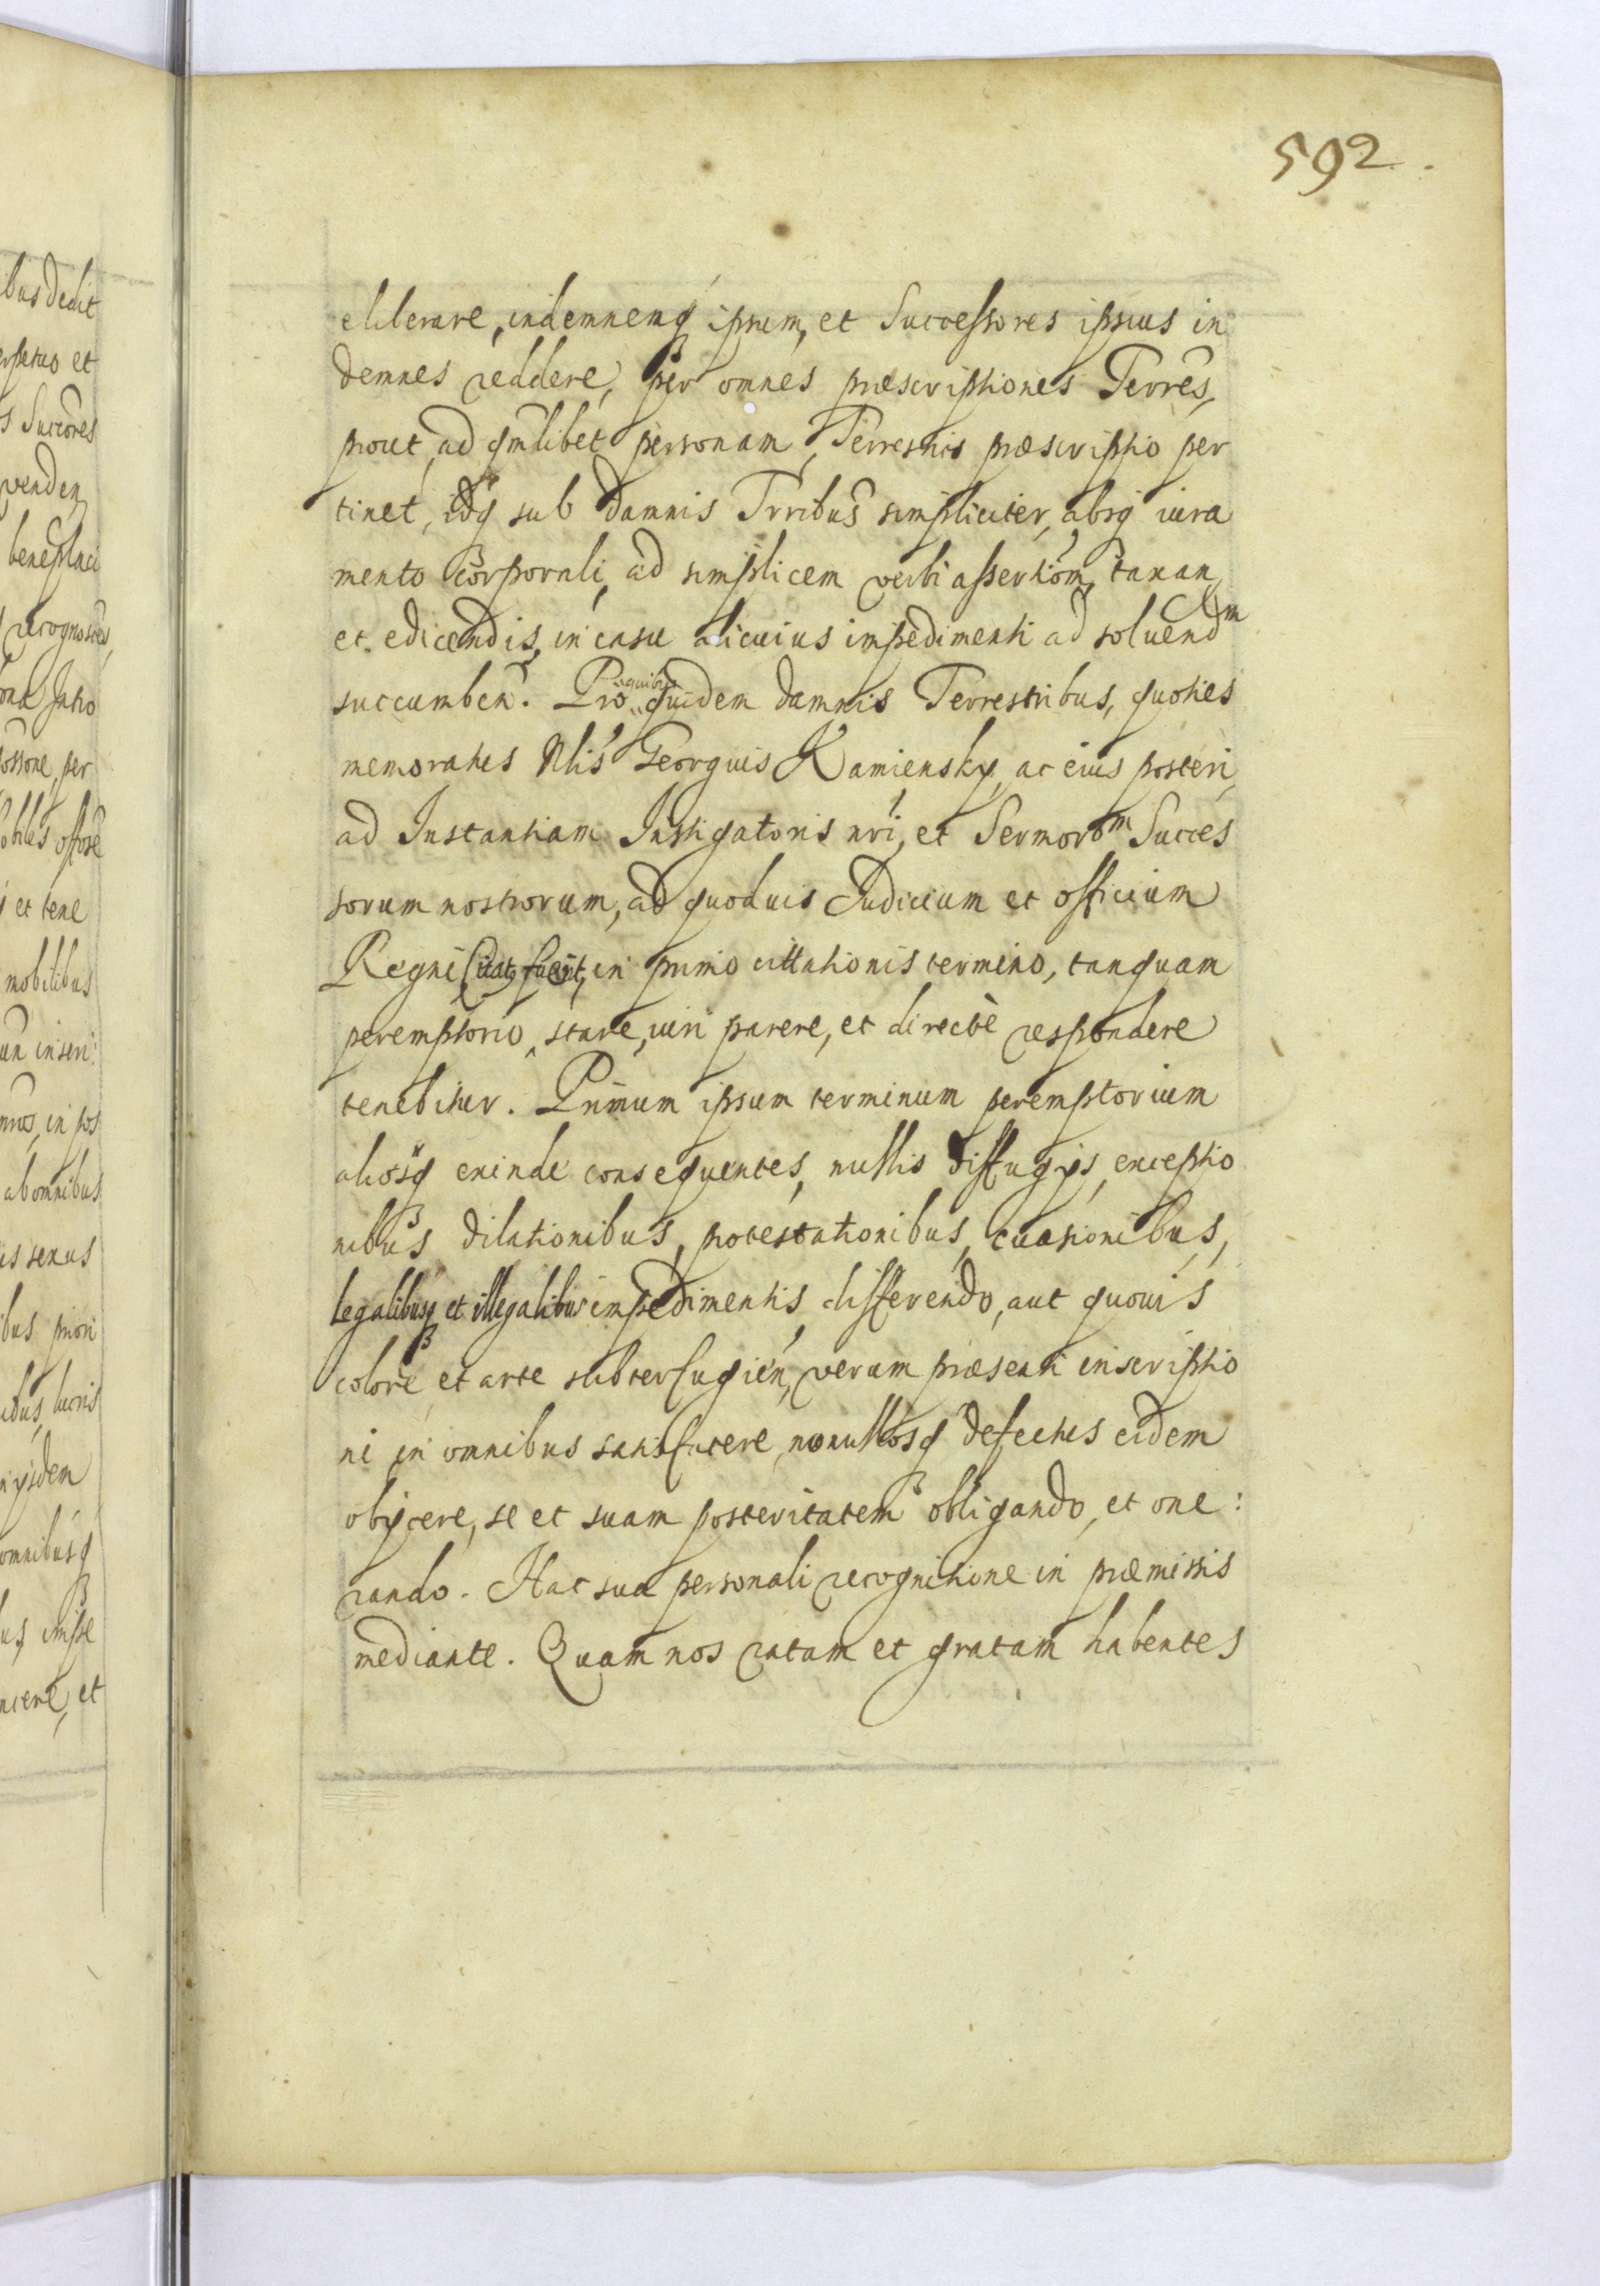 592.
eliberare, indemnemq ipsum, et Successores ipsius in
demnes reddere, per omnes præscriptiones Terres,
prout ad qmlibet personam Terrestris præscriptio per
tinet, idq sub damnis Trribus simpliciter, absq iura
mento corporali, ad simplicem verbi assertiom, taxan,
et edicendis, in casu alicuius impedimenti ad soluendm
succumben. Pro quibus quidem damnis Terrestribus, quoties
memoratus Nlis Georgius Kamiensky, ac eius posteri,
ad Instantiam Instigatoris nri, et Sermorom Succes
sorum nostrorum, ad quoduis Iudicium et officium
Regni citat fuerit, in primo cittationis termino, tanquam
peremptorio, stare, iuri parere, et directè respondere
tenebitur. Primum ipsum terminum peremptorium
aliosq exinde consequentes, nullis diffugijs, exceptio
nibus dilationibus, protestationibus, euasionibus,
legalibusq et illegalibus impedimentis, differendo, aut quouis
colore et arte subterfugien, verum præsenti inscriptio
ni in omnibus satisfacere, nonullosq defectus eidem
obijcere, se et suam posteritatem obligando, et one:
rando. Hac sua personali recognitione in præmissis
mediante. Quam nos ratam et gratam habentes
ibus dedit
erpetuo et
s Succores
venden
beneplaci
recognoscen,
Intro
possone, per
et tene
mobilibus
un inseri:
in pos
ab omnibus
is sexus
ibus priori
lucris
ijsdem
omnibusq
impe
et